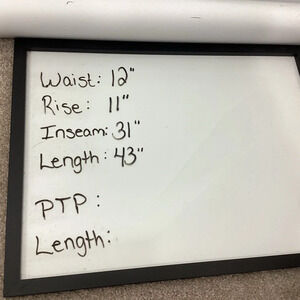 Waist: 12"
Rise: 11"
Inseam: 31"
Length: 43"
PTP:
Length: